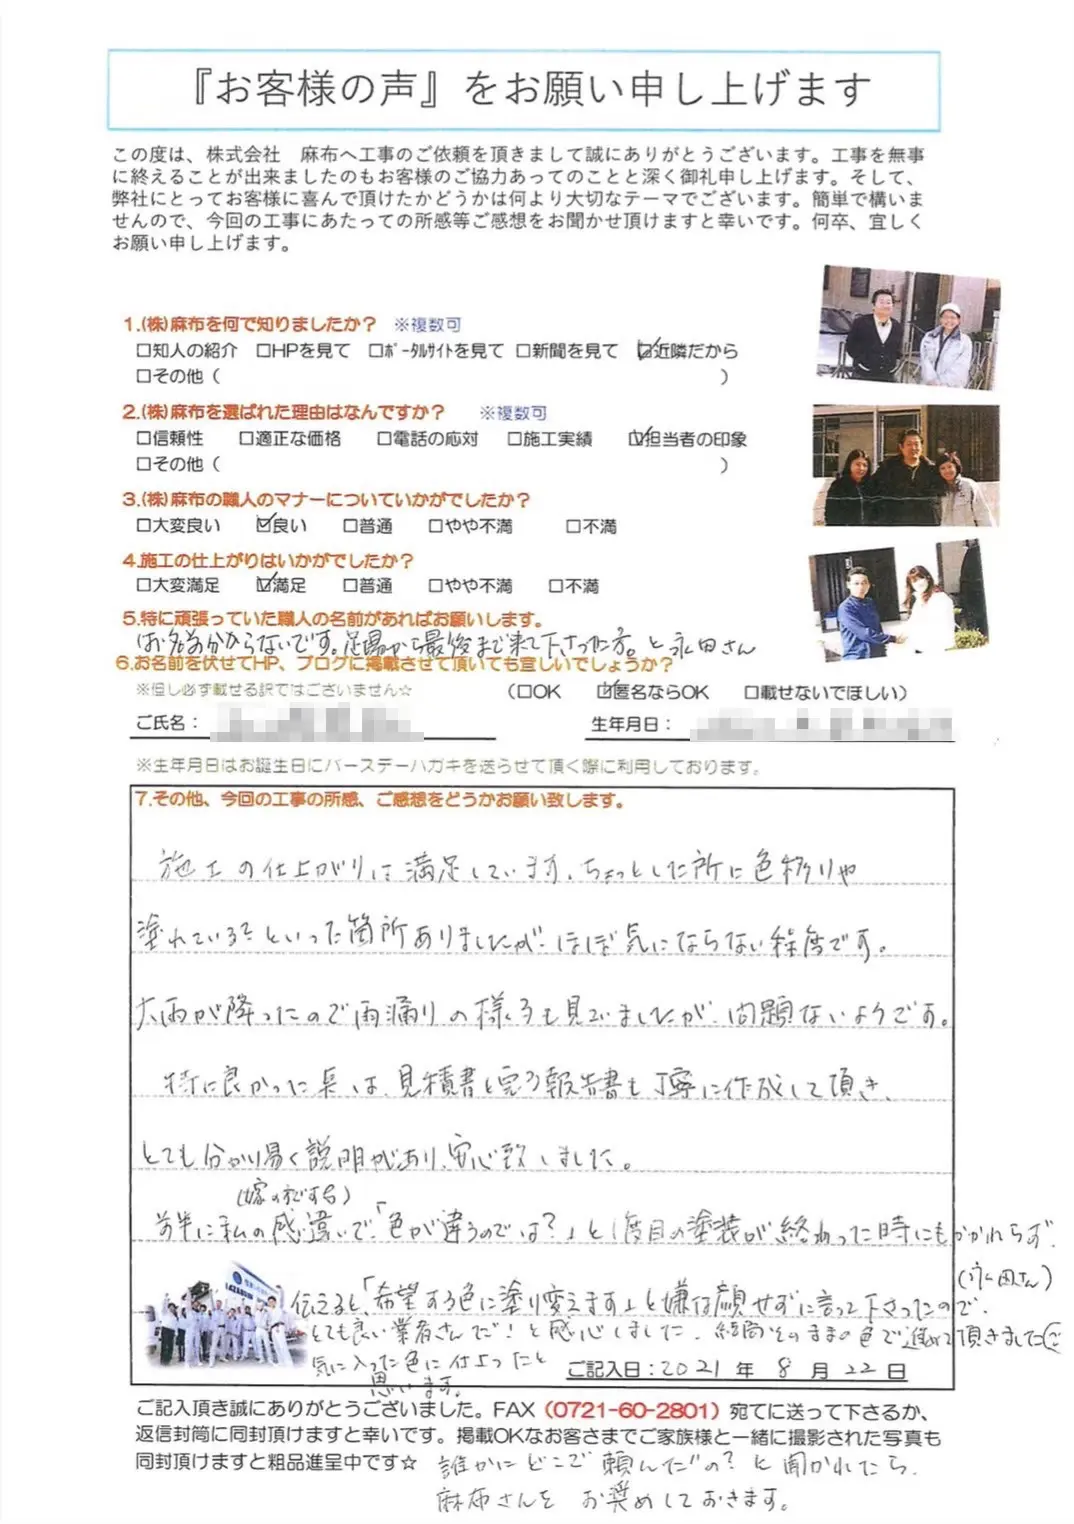 『お客様の声』をお願い申し上げます
この度は、株式会社　麻布へ工事のご依頼を頂きまして誠にありがとうございます。工事を無事
に終えることが出来ましたのもお客様のご協力あってのことと深く御礼申し上げます。そして、
弊社にとってお客様に喜んで頂けたかどうかは何より大切なテーマでございます。簡単で構いま
せんので、今回の工事にあたっての所感等ご感想をお聞かせ頂けますと幸いです。何卒、宜しく
お願い申し上げます。
1.(株)麻布を何で知りましたか？　※複数可
□知人の紹介　□HPを見て　□ﾎﾟｰﾀﾙｻｲﾄを見て　□新聞を見て　☑近隣だから
□その他（　　　　　　　　　　）
2.(株)麻布を選ばれた理由はなんですか？　※複数可
□信頼性　□適正な価格　□電話の応対　□施工実績　☑担当者の印象
□その他（　　　　　　　　　　）
3.(株)麻布の職人のマナーについていかがでしたか？
□大変良い　☑良い　□普通　□やや不満　□不満
4.施工の仕上がりはいかがでしたか？
□大変満足　☑満足　□普通　□やや不満　□不満
5.特に頑張っていた職人の名前があればお願いします。
お名前分からないです。足場から最後まで来て下さった方。と永田さん
6.お名前を伏せてHP、ブログに掲載させて頂いても宜しいでしょうか？
※但し必ず載せる訳ではございません☆　（□OK　☑匿名ならOK　□載せないでほしい）
ご氏名：　生年月日：
※生年月日はお誕生日にバースデーハガキを送らせて頂く際に利用しております。
7.その他、今回の工事の所感、ご感想をどうかお願い致します。
施工の仕上がりは満足しています。ちょっとした所に色移りや
塗れている？といった箇所ありましたが、ほぼ気にならない程度です。
大雨が降ったので雨漏りの様子も見ていましたが、問題ないようです。
特に良かった点は、見積書と完了報告書も丁寧に作成して頂き、
とても分かり易く説明があり、安心致しました。
(嫁の私です)
前半に私の感違いで、「色が違うのでは？」と1度目の塗装が終わった時にもかかわらず、
(永田さん)
伝えると、「希望する色に塗り変えます」と嫌な顔せずに言って下さったので、
とても良い業者さんだ！と感心しました。結局そのままの色で進めて頂きました
気に入った色に仕上ったと
思います。
ご記入日：2021年 8月 22日
ご記入頂き誠にありがとうございました。FAX（0721-60-2801）宛てに送って下さるか、
返信封筒に同封頂けますと幸いです。掲載OKなお客さまでご家族様と一緒に撮影された写真も
同封頂けますと粗品進呈中です☆
誰かにどこで頼んだの？と聞かれたら、
麻布さんを　お奨めしておきます。